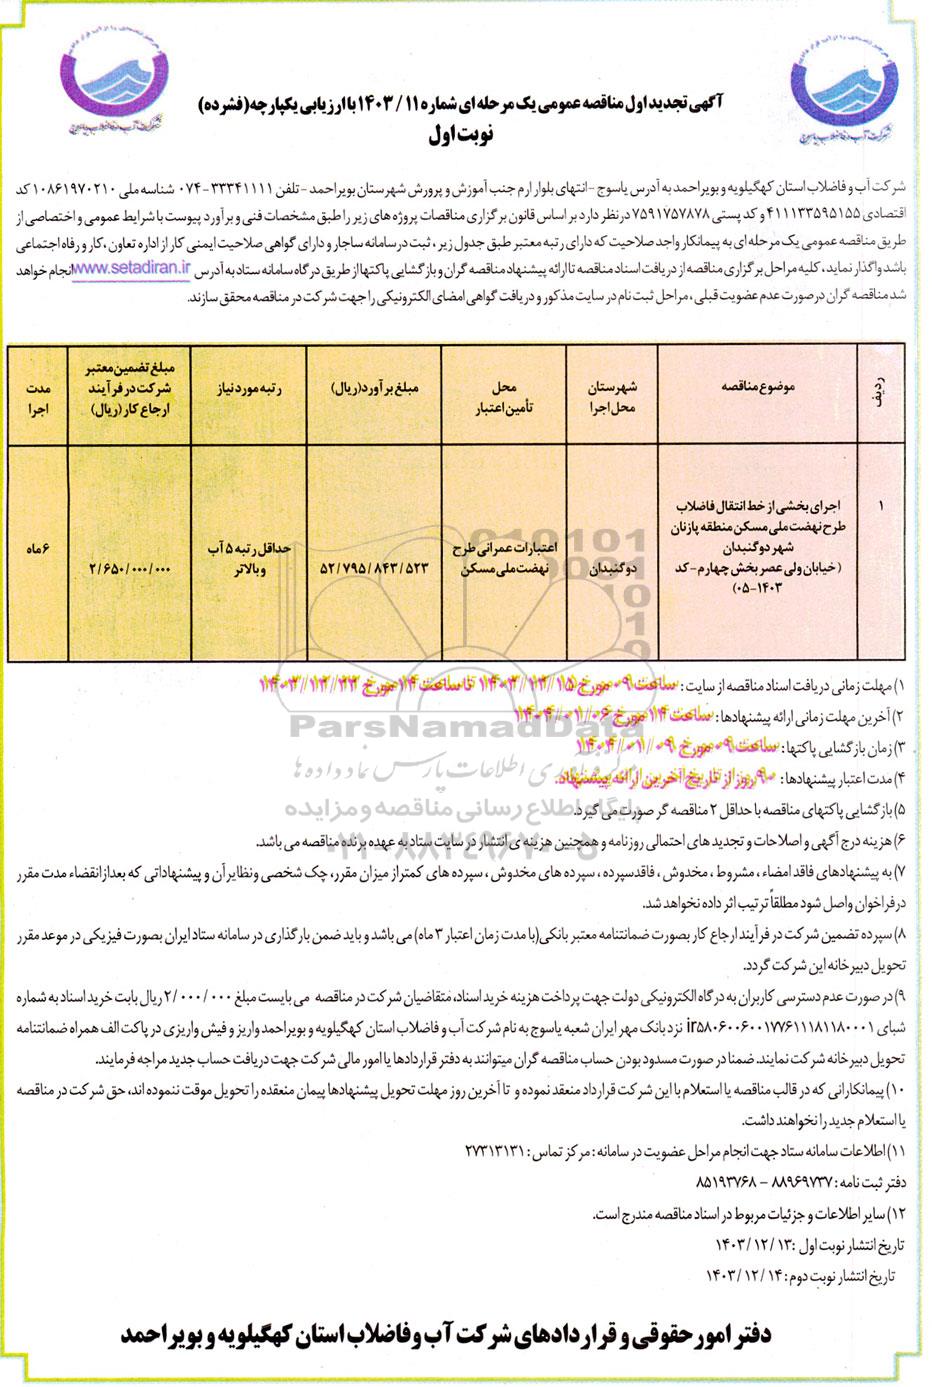 آگهی تجدید اول مناقصه عمومی یک مرحله ای شماره ۱۱ / ۱۴۰۳ با ارزیابی یکپارچه(فشرده)
نوبت اول
شرکت آب و فاضلاب استان کهگیلویه و بویراحمد به آدرس یاسوج -انتهای بلوار ارم جنب آموزش و پرورش شهرستان بویراحمد -تلفن ۳۳۳۴۱۱۱۱-۰۷۴ شناسه ملی ۱۰۸۶۱۹۷۰۲۱۰ کد
اقتصادی ۴۱۱۱۳۳۵۹۵۱۵۵ و کد پستی ۷۵۹۱۷۵۷۸۷۸ درنظر دارد بر اساس قانون برگزاری مناقصات پروژه های زیر را طبق مشخصات فنی و برآورد پیوست با شرایط عمومی و اختصاصی از
طریق مناقصه عمومی یک مرحله ای به پیمانکار واجد صلاحیت که دارای رتبه معتبر طبق جدول زیر ، ثبت در سامانه ساجار و دارای گواهی صلاحیت ایمنی کار از اداره تعاون ، کار و رفاه اجتماعی
باشد واگذار نماید ، کلیه مراحل برگزاری مناقصه از دریافت اسناد مناقصه تا ارائه پیشنهاد مناقصه گران و بازگشایی پاکتها از طریق درگاه سامانه ستاد به آدرس www.setadiran.ir انجام خواهد
شد مناقصه گران درصورت عدم عضویت قبلی ، مراحل ثبت نام در سایت مذکور و دریافت گواهی امضای الکترونیکی را جهت شرکت در مناقصه محقق سازند.
ردیف
موضوع مناقصه
شهرستان محل اجرا
محل تأمین اعتبار
مبلغ برآورد(ریال)
رتبه مورد نیاز
مبلغ تضمین معتبر شرکت در فرآیند ارجاع کار (ریال)
مدت اجرا
۱
اجرای بخشی از خط انتقال فاضلاب
طرح نهضت ملی مسکن منطقه پازنان
شهر دوگنبدان
(خیابان ولی عصر بخش چهارم - کد
۱۴۰۳-۰۵)
دوگنبدان
اعتبارات عمرانی طرح
نهضت ملی مسکن
۵۲/۷۹۵/۸۴۳/۵۲۳
حداقل رتبه ۵ آب
و بالاتر
۲/۶۵۰/۰۰۰/۰۰۰
۶ ماه
۱) مهلت زمانی دریافت اسناد مناقصه از سایت : ساعت ۰۹ مورخ ۱۴۰۳/۱۲/۱۵ تا ساعت ۱۴ مورخ ۱۴۰۳/۱۲/۲۲
۲) آخرین مهلت زمانی ارائه پیشنهادها : ساعت ۱۴ مورخ ۱۴۰۴/۰۱/۰۶
ParsNamadData
۳) زمان بازگشایی پاکتها : ساعت ۰۹ مورخ ۱۴۰۴/۰۱/۰۹
۴) مدت اعتبار پیشنهادها : ۹۰ روز از تاریخ آخرین ارائه پیشنهاد.
فرآوری اطلاعات پارس نماد داده ها
۵) بازگشایی پاکتهای مناقصه با حداقل ۲ مناقصه گر صورت می گیرد.
پایگاه اطلاع رسانی مناقصه و مزایده
۶) هزینه درج آگهی و اصلاحات و تجدید های احتمالی روزنامه و همچنین هزینه ی انتشار در سایت ستاد به عهده برنده مناقصه می باشد.
۰۲۱-۸۸۳۴۹۶۷۰-۵
۷) به پیشنهادهای فاقد امضاء ، مشروط ، مخدوش ، فاقدسپرده ، سپرده های مخدوش ، سپرده های کمتراز میزان مقرر، چک شخصی ونظایرآن و پیشنهاداتی که بعدازانقضاء مدت مقرر
درفراخوان واصل شود مطلقاً ترتیب اثر داده نخواهد شد.
۸) سپرده تضمین شرکت در فرآیند ارجاع کار بصورت ضمانتنامه معتبر بانکی(با مدت زمان اعتبار ۳ ماه) می باشد و باید ضمن بارگذاری در سامانه ستاد ایران بصورت فیزیکی در موعد مقرر
تحویل دبیرخانه این شرکت گردد.
۹) در صورت عدم دسترسی کاربران به درگاه الکترونیکی دولت جهت پرداخت هزینه خرید اسناد، متقاضیان شرکت در مناقصه می بایست مبلغ ۲/۰۰۰/۰۰۰ ریال بابت خرید اسناد به شماره
شبای ir۵۸۰۶۰۰۶۰۰۱۷۷۶۱۱۱۸۱۱۸۰۰۰۱ نزد بانک مهر ایران شعبه یاسوج به نام شرکت آب و فاضلاب استان کهگیلویه و بویراحمد واریز و فیش واریزی در پاکت الف همراه ضمانتنامه
تحویل دبیرخانه شرکت نمایند. ضمنا در صورت مسدود بودن حساب مناقصه گران میتوانند به دفتر قراردادها یا امور مالی شرکت جهت دریافت حساب جدید مراجه فرمایند.
۱۰) پیمانکارانی که در قالب مناقصه یا استعلام با این شرکت قرارداد منعقد نموده و تا آخرین روز مهلت تحویل پیشنهادها پیمان منعقده را تحویل موقت ننموده اند، حق شرکت در مناقصه
یا استعلام جدید را نخواهند داشت.
۱۱) اطلاعات سامانه ستاد جهت انجام مراحل عضویت در سامانه : مرکز تماس : ۲۷۳۱۳۱۳۱
دفتر ثبت نامه : ۸۸۹۶۹۷۳۷ - ۸۵۱۹۳۷۶۸
۱۲) سایر اطلاعات و جزئیات مربوط در اسناد مناقصه مندرج است.
تاریخ انتشار نوبت اول : ۱۴۰۳/۱۲/۱۳
تاریخ انتشار نوبت دوم : ۱۴۰۳/۱۲/۱۴
دفتر امور حقوقی و قراردادهای شرکت آب و فاضلاب استان کهگیلویه و بویر احمد